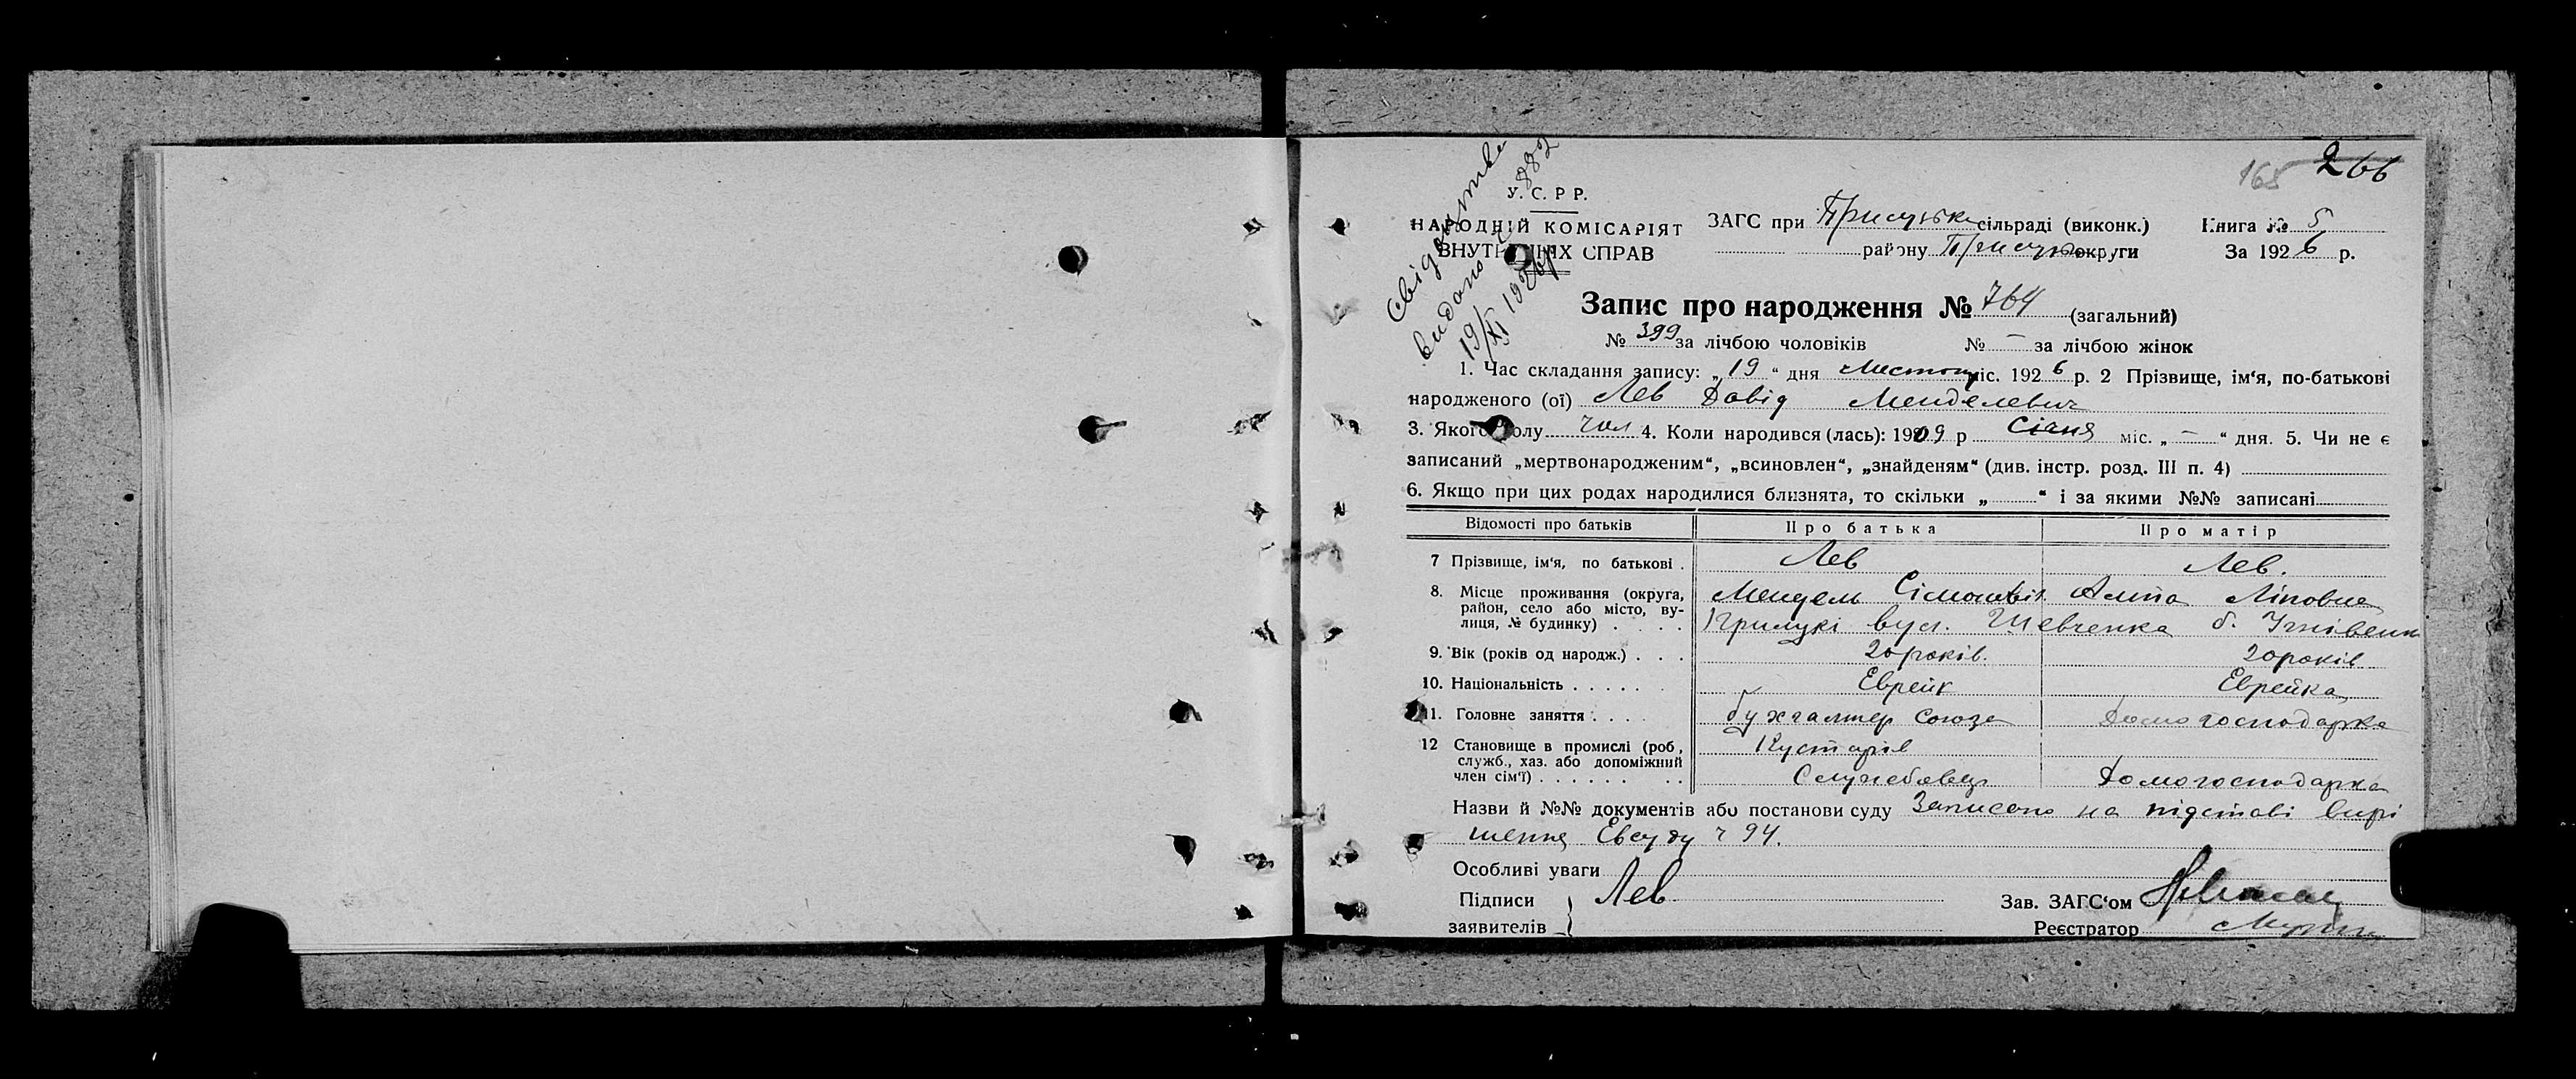 165 266
Свідоцтво
видано 882
19/XI 1926
У. С. Р Р.
НАРОДНІЙ КОМІСАРІЯТ
ВНУТРІШНІХ СПРАВ
ЗАГС при Прилуцькe сільраді (виконк.)
району Прилуцьк округи
Книга № 5
За 1926 р.
Запис про народження № 764 (загальний)
№ 399 за лічбою чоловіків № — за лічбою жінок
1. Час складання запису: „ 19 “ дня Листоп міс. 1926 р. 2 Прізвище, ім‘я, по-батькові
народженого (ої) Лев Давід Менделевич
3. Якого полу чол 4. Коли народився (лась): 1909 р Січня міс. „ — “ дня. 5. Чи не є
записаний „мертвонародженим“, „всиновлен“, „знайденям“ (див. інстр. розд. III п. 4)
6. Якщо при цих родах народилися близнята, то скільки „ “ і за якими №№ записані
Відомості про батьків Про батька Про матір
7 Прізвище, ім‘я, по батькові . Лев Лев.
8. Місце проживання (округа, район, село або місто, вулиця, № будинку) . . . . Мендель Сімонов Ліповна
Прилукі вул. Шевченка б.
9. Вік (років од народж.) . . . 20 років. 20 років
10. Національність . . . . . Еврей Еврейка
11. Головне заняття . . . . бухгалтер Союза Домогосподарка
Кустарів
12 Становище в промислі (роб, служб., хаз. або допоміжний член сім‘ї) . . . . . . . . Службовець Домогосподарка
Назви й №№ документів або постанови суду Записано на підставі вирі
шення Евсуду ч 94.
Особливі уваги
Підписи Лев Зав. ЗАГС‘ом
заявителів Реєстратор